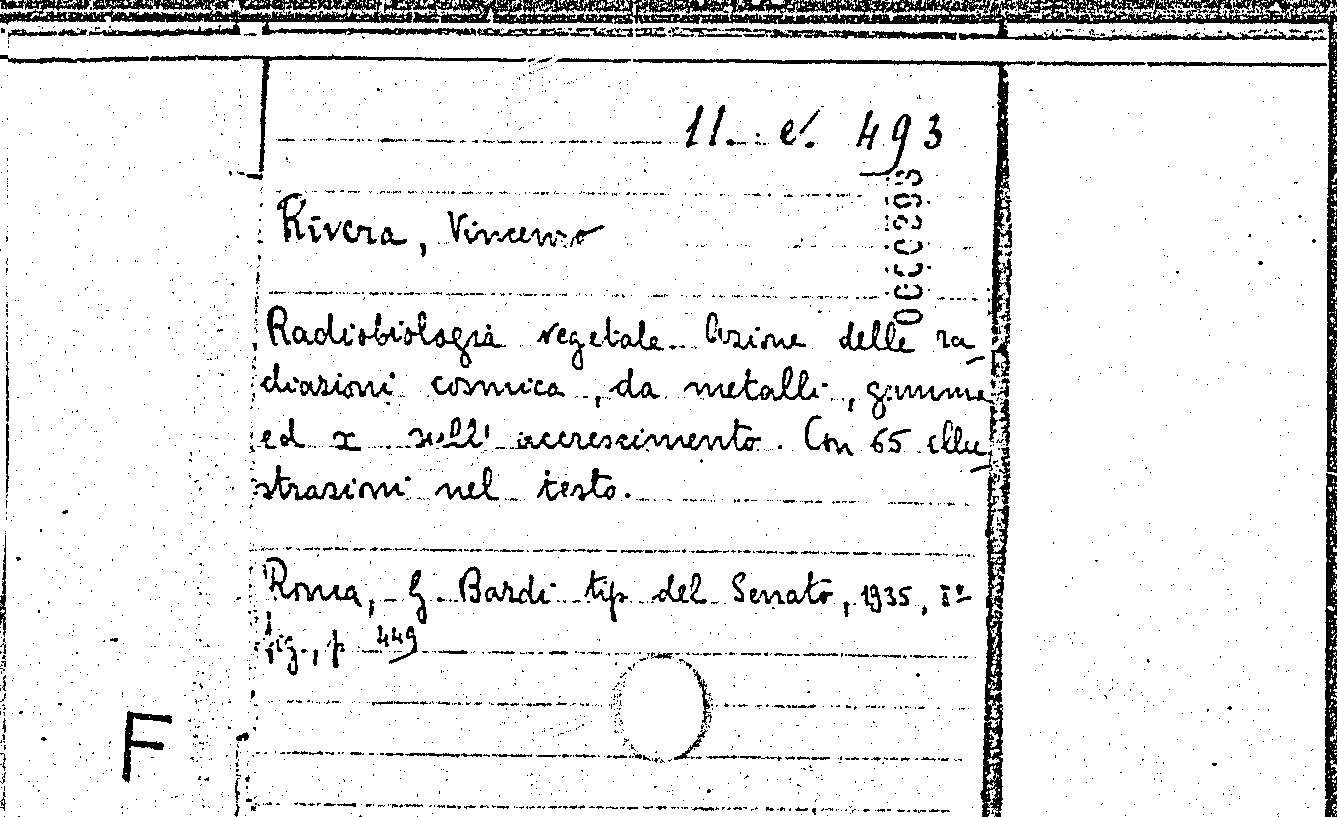 11. e. 493
0000293
Rivera, Vincenzo
Radiobiologia vegetale. Azione delle ra
diazioni cosmica, da metalli, gamma
ed x sull' accrescimento. Con 65 illu
strazioni nel testo.
Roma, G. Bardi tip del Senato, 1935, 8º
fig., p 449
F